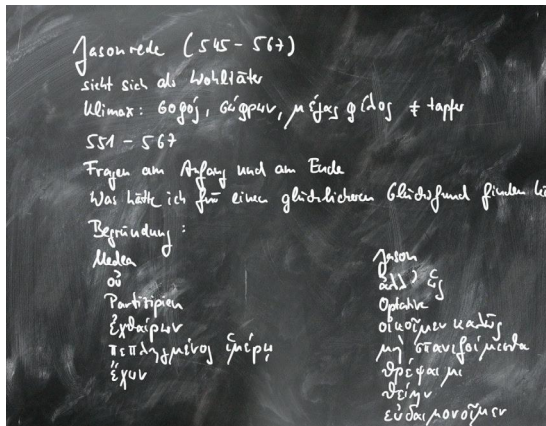 Jasonrede (545 - 567)
sieht sich als Wohltäter
Klimax: σοφός, σώφρων, μέγας φίλος ≠ tapfer
551 - 567
Fragen am Anfang und am Ende
Was hätte ich für einen glücklicheren Glücksfund finden
Begründung:
Medea
οὐ
Partizipien
ἐχθαίρων
πεπληγμένος ἱμέρῳ
ἔχων
Jason
ἀλλ' ὡς
Optative
οἰκοῖμεν καλῶς
μὴ σπανιζοίμεσθα
θρέψαιμι
θείην
εὐδαιμονοῖμεν